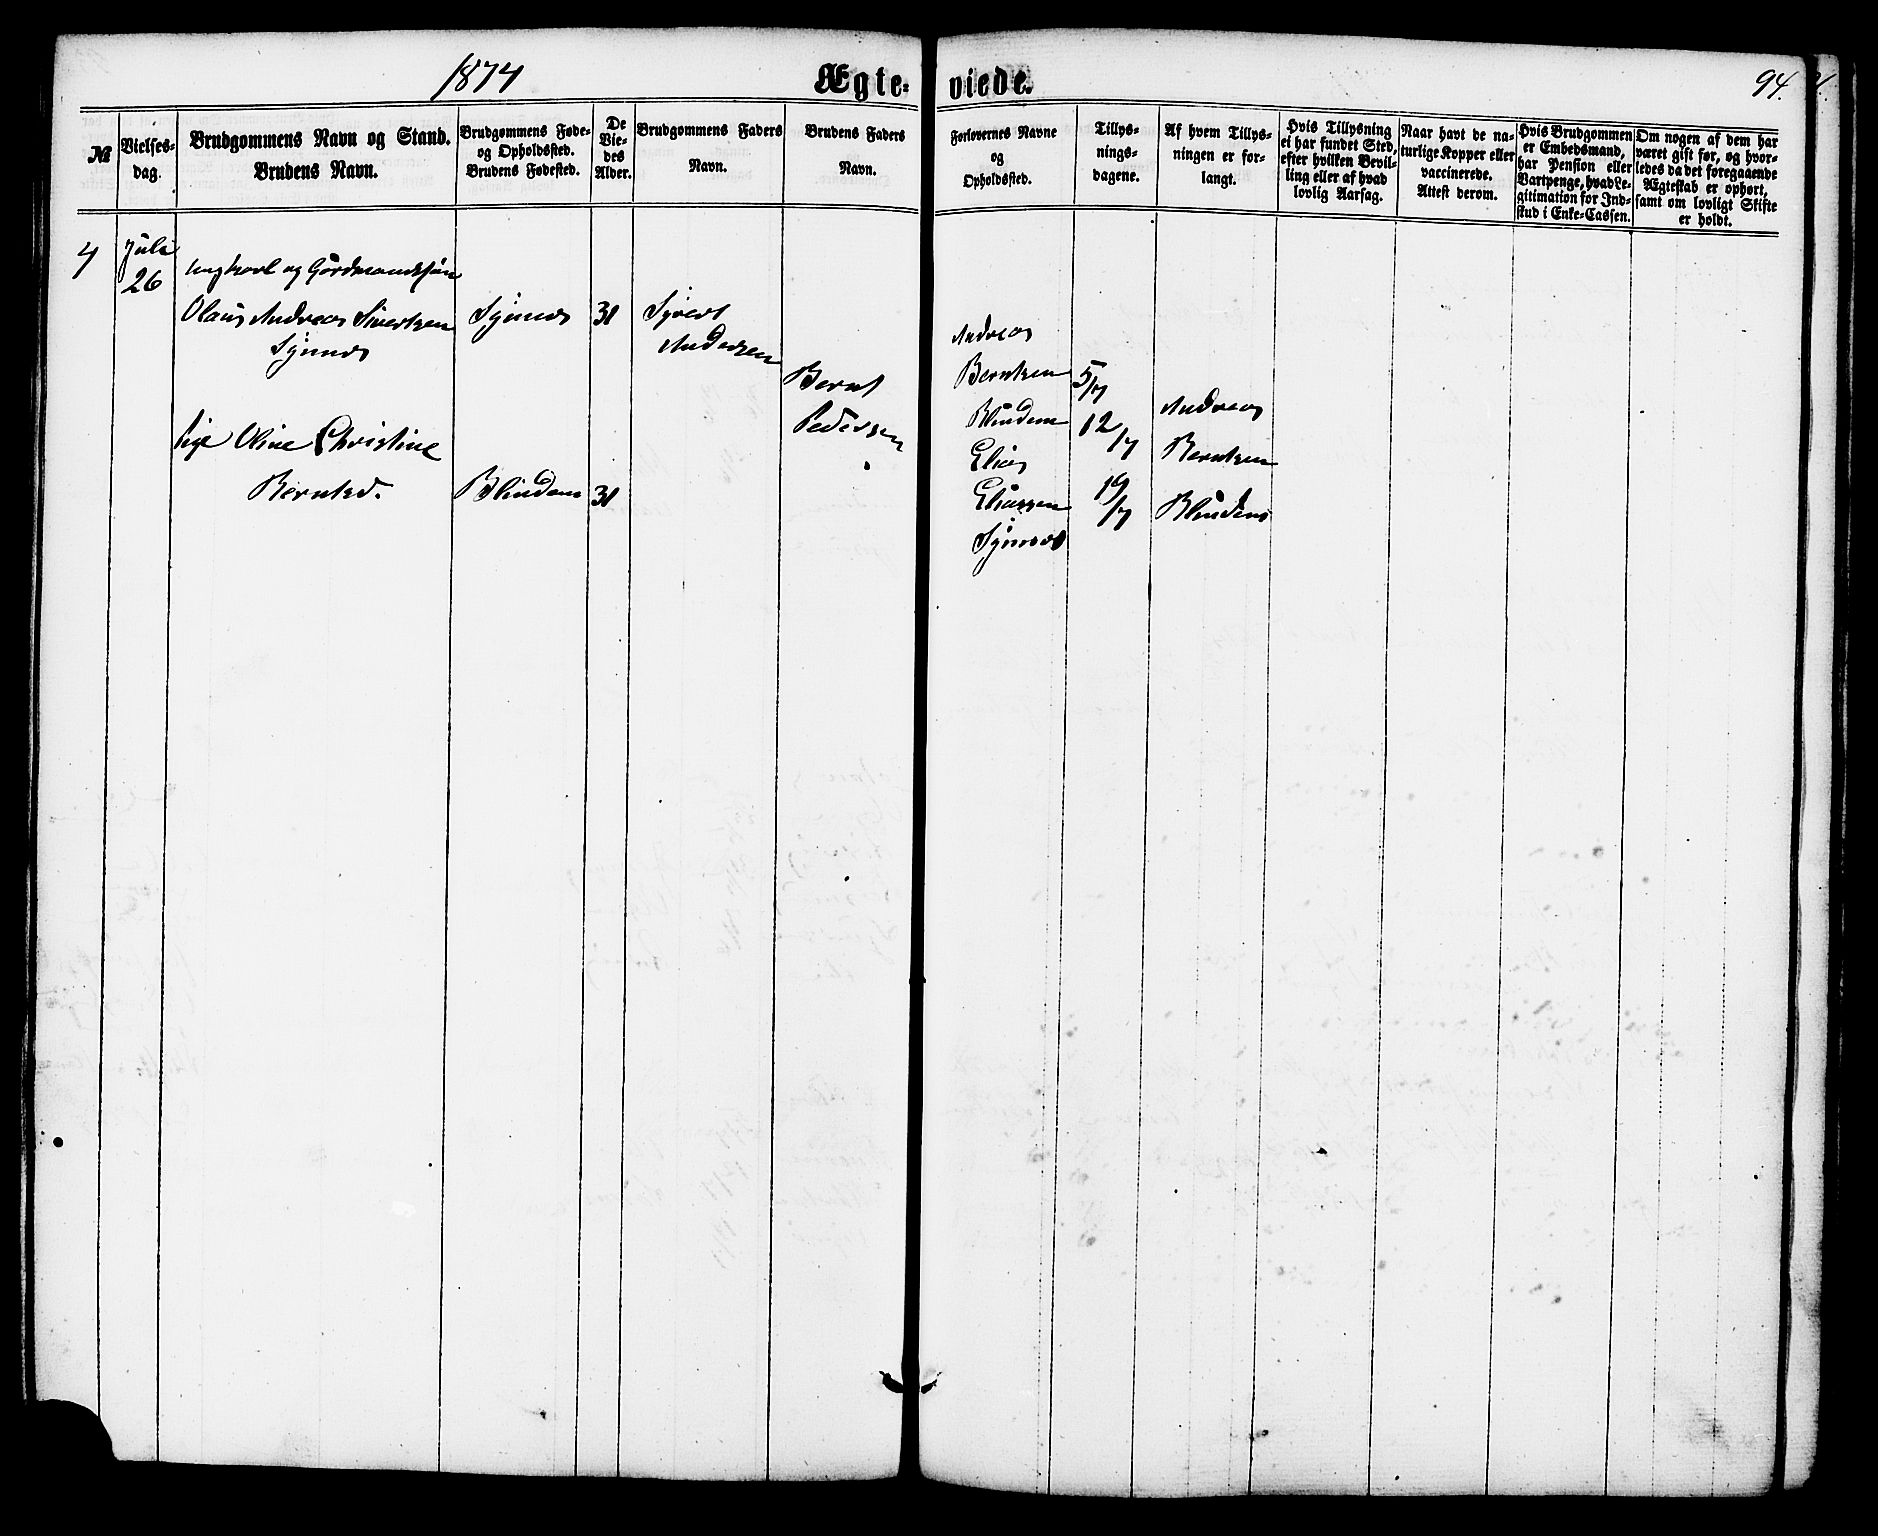 1874
Ægte-
viede.
94.
№
Vielses-
dag.
Brudgommens Navn og Stand.
Brudens Navn.
Brudgommens Føde-
og Opholdssted.
Brudens Fødested.
De
Vie-
des
Alder.
Brudgommens Faders
Navn.
Brudens Faders
Navn.
Forlovernes Navne
og
Opholdssted.
Tillys-
nings-
dagene.
Af hvem Tillys-
ningen er for-
langt.
Hvis Tillysning
ei har fundet Sted,
efter hvilken Bevil-
ling eller af hvad
lovlig Aarsag.
Naar havt de na-
turlige Kopper eller
vaccinerede.
Attest derom.
Hvis Brudgommen
er Embedsmand,
har Pension eller
Vartpenge, hvad Le-
gitimation for Ind-
skud i Enke-Cassen.
Om nogen af dem har
været gift før, og hvor-
ledes da det foregaaende
Ægteskab er ophørt,
samt om lovligt Skifte
er holdt.
7
Juli
26
ungkarl og Gårdmandssøn
Olaus Andreas Sivertsen
Synnes
Synnes
31
Syvert
Andersen
Bernt
Pedersen
pige Oline Christine
Berntsd.
Blindem
31
Andreas
Berntsen
Blindem
Elias
Eliassen
Synnes
5/7
12/7
19/7
Andreas
Berntsen
Blindem